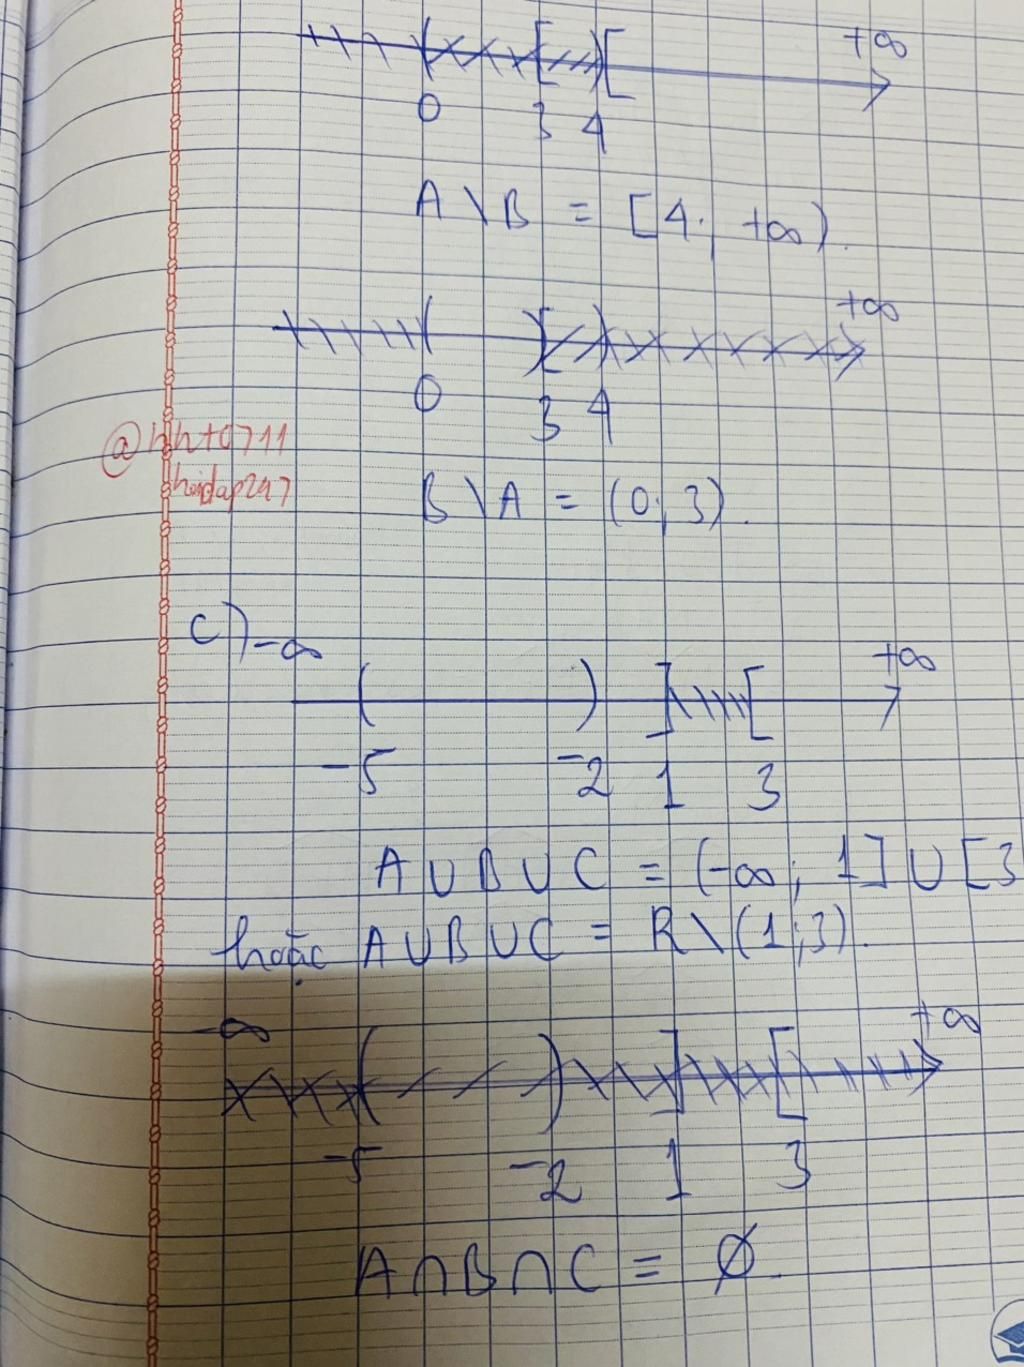 +∞
0 3 4
A \ B = [4; +∞).
+∞
0 3 4
@hht0711
hoidap247
B \ A = (0; 3).
c) -∞ +∞
-5 -2 1 3
A ∪ B ∪ C = (-∞; 1] ∪ [3
hoặc A ∪ B ∪ C = R \ (1; 3).
-∞ +∞
-5 -2 1 3
A ∩ B ∩ C = ∅.